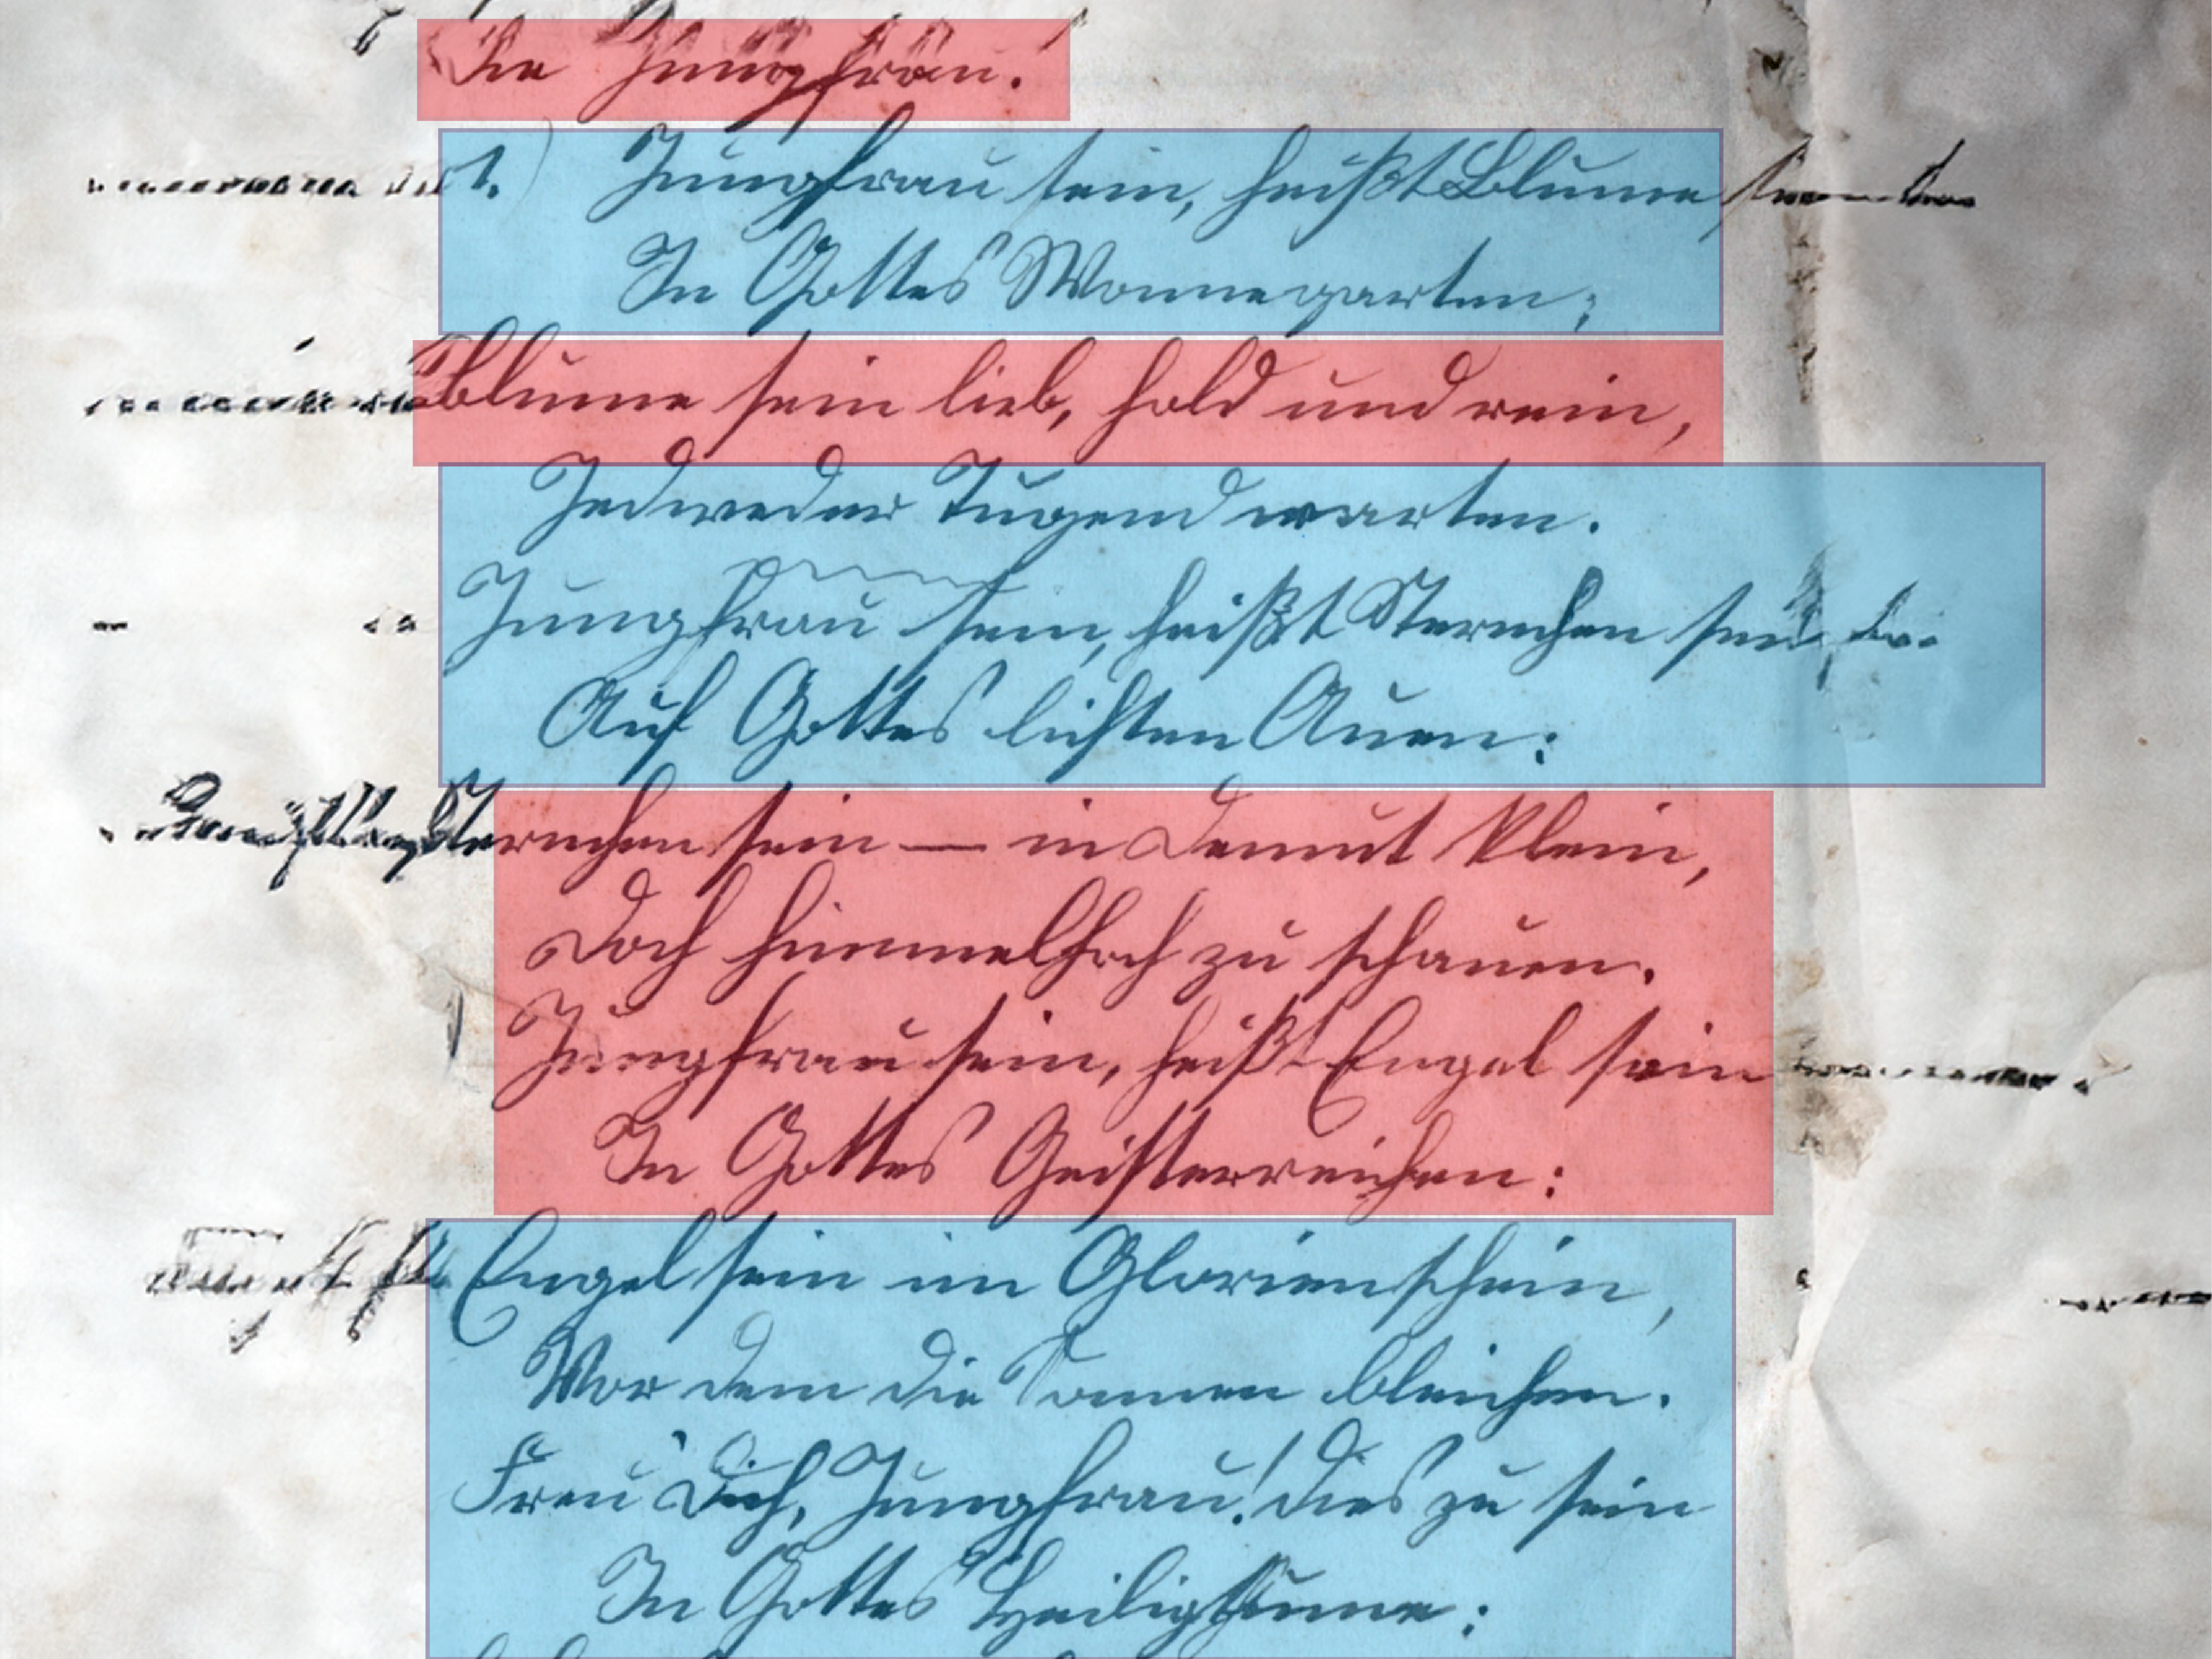 Die Jungfrau.
1.) Jungfrau sein, heißt Blume
In Gottes Wonnegarten;
Blume sein lieb, hold und rein,
Jedweder Tugend warten.
Jungfrau sein, heißt Sternchen sein
Auf Gottes lichten Auen:
Sternchen sein — in Demut klein,
Doch himmelhoch zu schauen.
Jungfrau sein, heißt Engel sein
In Gottes Geisterreichen:
Engel sein im Glorienschein,
Vor dem die Sonnen bleichen.
Freu Dich, Jungfrau! dies zu sein
In Gottes Heiligthume: